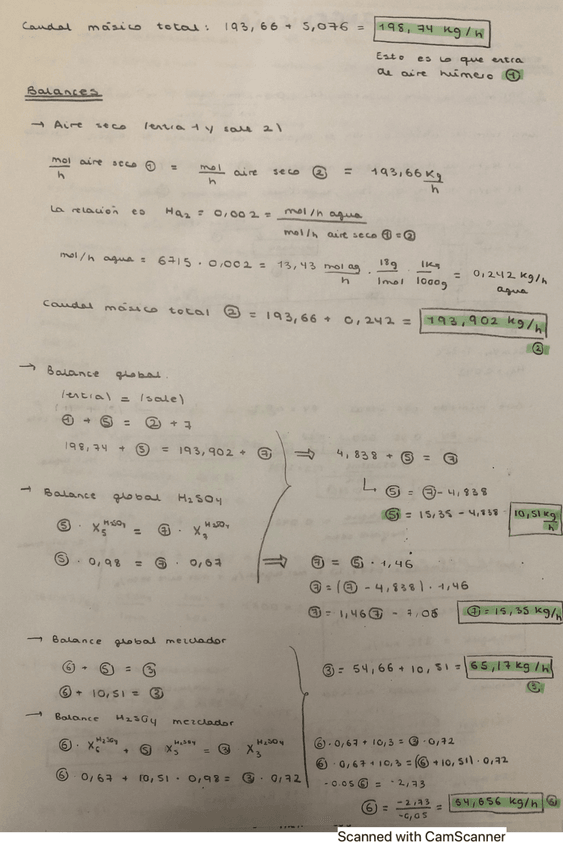 Caudal másico total: 193,66 + 5,076 = 198,74 kg/h
Esto es lo que entra
de aire húmero ①
Balances
→ Aire seco (entra 1 y sale 2)
mol/h aire seco ① = mol/h aire seco ② = 193,66 Kg/h
La relación es Ha₂ = 0,002 = mol/h agua / mol/h aire seco ①=②
mol/h agua = 6715 · 0,002 = 13,43 mol ag/h · 18g/1mol · 1Kg/1000g = 0,242 Kg/h agua
Caudal másico total ② = 193,66 + 0,242 = 193,902 Kg/h
②
→ Balance global.
(entra) = (sale)
① + ⑤ = ② + 7
198,74 + ⑤ = 193,902 + ⑦ ⇒ 4,838 + ⑤ = ⑦
⑤ = ⑦ - 4,838
⑤ = 15,35 - 4,838 = 10,51 kg/h
→ Balance global H₂SO₄
⑤ · X₅^H₂SO₄ = ⑦ · X₇^H₂SO₄
⑤ · 0,98 = ⑦ · 0,67 ⇒ ⑦ = ⑤ · 1,46
⑦ = (⑦ - 4,838) · 1,46
⑦ = 1,46⑦ - 7,06 ⑦ = 15,35 kg/h
→ Balance global mezclador
⑥ + ⑤ = ③
⑥ + 10,51 = ③
③ = 54,66 + 10,51 = 65,17 kg/h
③
→ Balance H₂SO₄ mezclador
⑥ · X₆^H₂SO₄ + ⑤ X₅^H₂SO₄ = ③ X₃^H₂SO₄
⑥ 0,67 + 10,51 · 0,98 = ③ · 0,72
⑥ · 0,67 + 10,3 = ③ · 0,72
⑥ · 0,67 + 10,3 = (⑥ + 10,51) · 0,72
-0.05 ⑥ = -2,73
⑥ = -2,73/-0,05 = 54,656 kg/h ⑥
Scanned with CamScanner